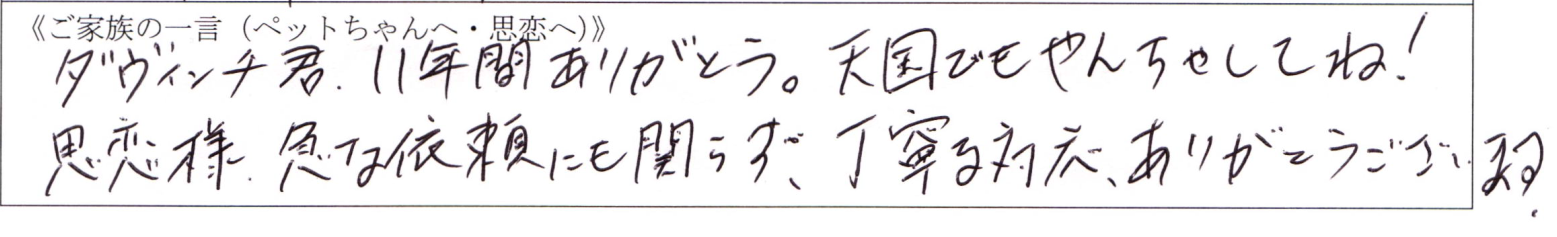 《ご家族の一言（ペットちゃんへ・思恋へ）》
ダヴィンチ君. 11年間ありがとう。天国でもやんちゃしてね!
思恋様. 急な依頼にも関らず、丁寧な対応、ありがとうございます。